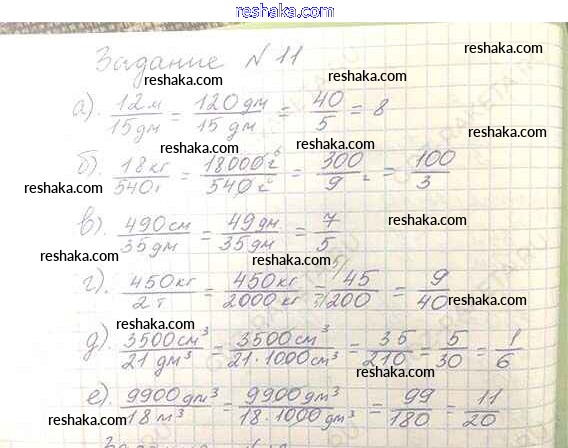 reshaka.com
Задание №11
reshaka.com reshaka.com
а). 12м/15дм = 120дм/15дм = 40/5 = 8
reshaka.com reshaka.com
б). 18кг/540г = 18000г/540г = 300/9 = 100/3
reshaka.com reshaka.com reshaka.com
в). 490см/35дм = 49дм/35дм = 7/5
reshaka.com reshaka.com
г). 450кг/2т = 450кг/2000кг = 45/200 = 9/40
reshaka.com reshaka.com
д). 3500см³/21дм³ = 3500см³/21·1000см³ = 35/210 = 5/30 = 1/6
reshaka.com reshaka.com
е). 9900дм³/18м³ = 9900дм³/18·1000дм³ = 99/180 = 11/20
reshaka.com reshaka.com